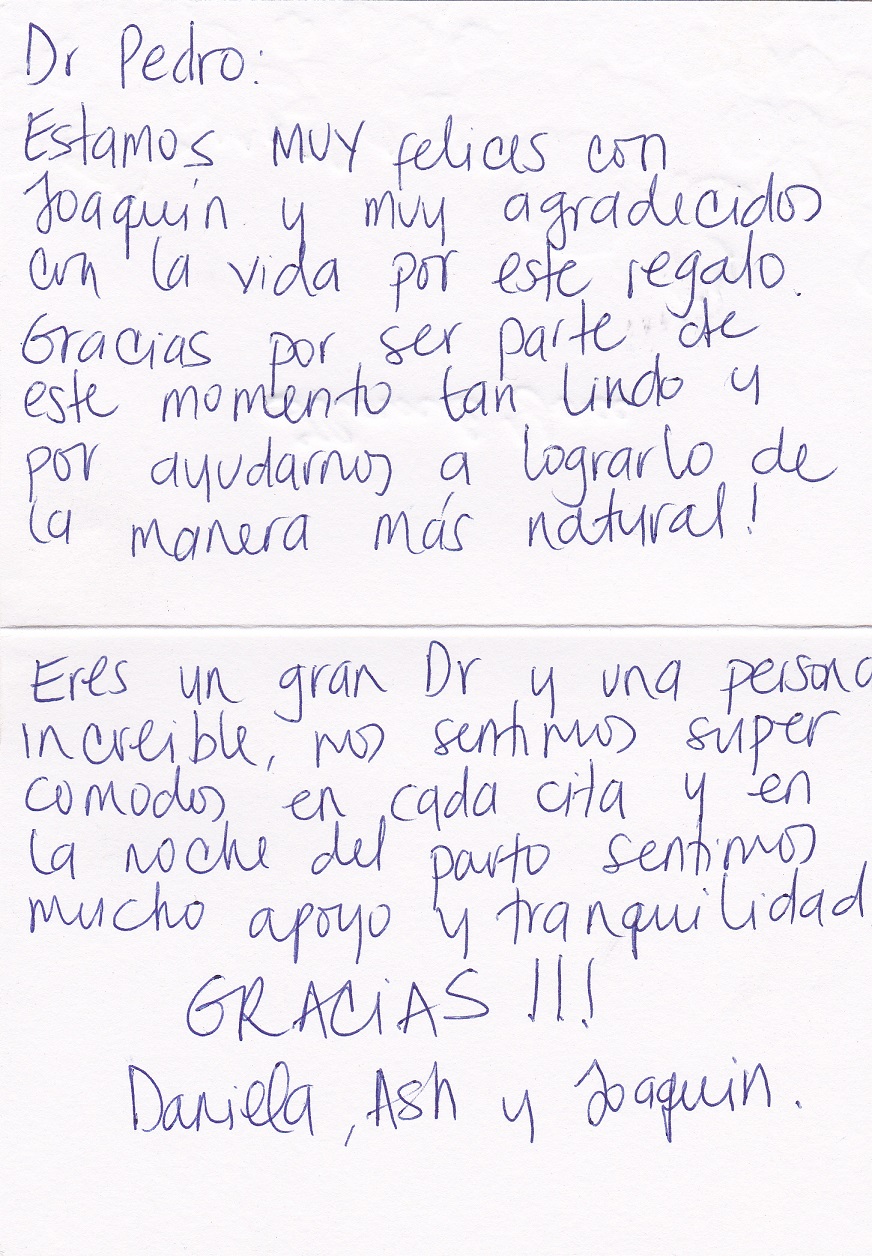 Dr Pedro:
Estamos MUY felices con
Joaquín y muy agradecidos
con la vida por este regalo.
Gracias por ser parte de
este momento tan lindo y
por ayudarnos a lograrlo de
la manera más natural!
Eres un gran Dr y una persona
increible, nos sentimos super
comodos en cada cita y en
la noche del parto sentimos
mucho apoyo y tranquilidad.
GRACiAS !!!
Daniela, Ash y Joaquin.